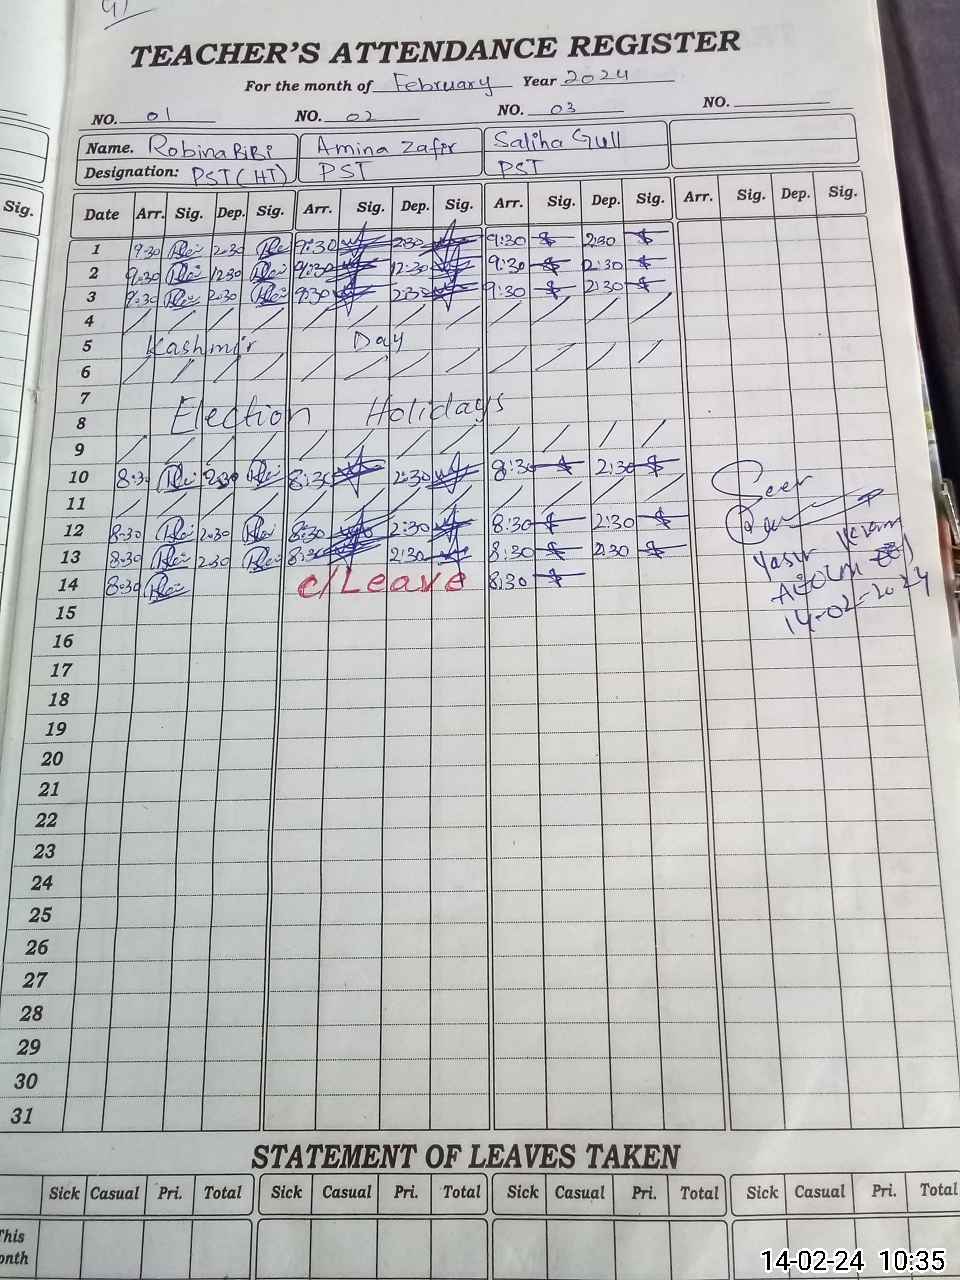 TEACHER'S ATTENDANCE REGISTER
For the month of February Year 2024
NO. 01 NO. 02 NO. 03 NO.
Name. Robina BiBi Amina Zafir Saliha Gull
Designation: PST (HT) PST PST
Sig. Date Arr. Sig. Dep. Sig. Arr. Sig. Dep. Sig. Arr. Sig. Dep. Sig. Arr. Sig. Dep. Sig.
1 9:30 2:30 9:30 2:30 9:30 2:30
2 9:30 12:30 9:30 12:30 9:30 12:30
3 9:30 2:30 9:30 2:30 9:30 2:30
4
5 Kashmir Day
6
7
8 Election Holidays
9
10 8:30 2:30 8:30 2:30 8:30 2:30
11
12 8:30 2:30 8:30 2:30 8:30 2:30
13 8:30 2:30 8:30 2:30 8:30 2:30
14 8:30 c/Leave 8:30
Seen
Yasir
14-02-2024
15
16
17
18
19
20
21
22
23
24
25
26
27
28
29
30
31
STATEMENT OF LEAVES TAKEN
Sick Casual Pri. Total Sick Casual Pri. Total Sick Casual Pri. Total Sick Casual Pri. Total
This
onth
14-02-24 10:35